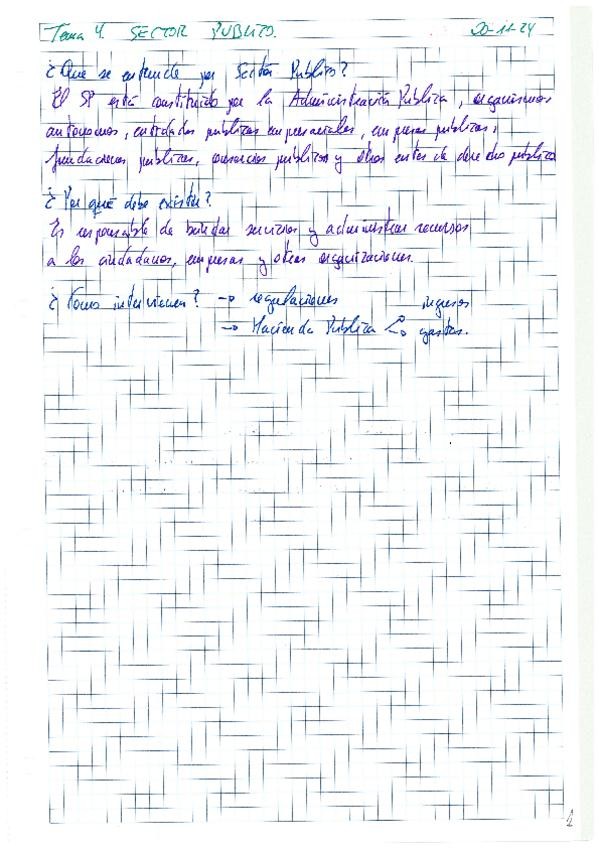 Tema 4. SECTOR PUBLICO. 20-11-24
¿Que se entiende por Sector Publico?
El SP está constituido por la Administración Publica, organismos
autonomos, entidades publicas empresariales, empresas publicas,
fundaciones publicas, consorcios publicos y otros entes de derecho publico
¿Por qué debe existir?
Es responsable de brindar servicios y administrar recursos
a los ciudadanos, empresas y otras organizaciones.
¿Como intervienen? → regulaciones
→ Hacienda Publica < ingresos
gastos.
1